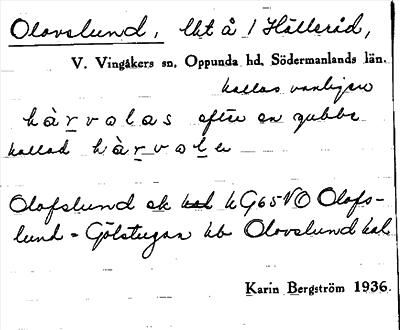 Olovslund, lht å 1 Hällsråd,
V. Vingåkers sn, Oppunda hd, Södermanlands län.
kallas vanligen
hàrvolas efter en gubbe
kallad hàrvolen
Olofslund ek kG65NO Olofs-
lund = Gölstugan hb Olovslund kal
Karin Bergström 1936.